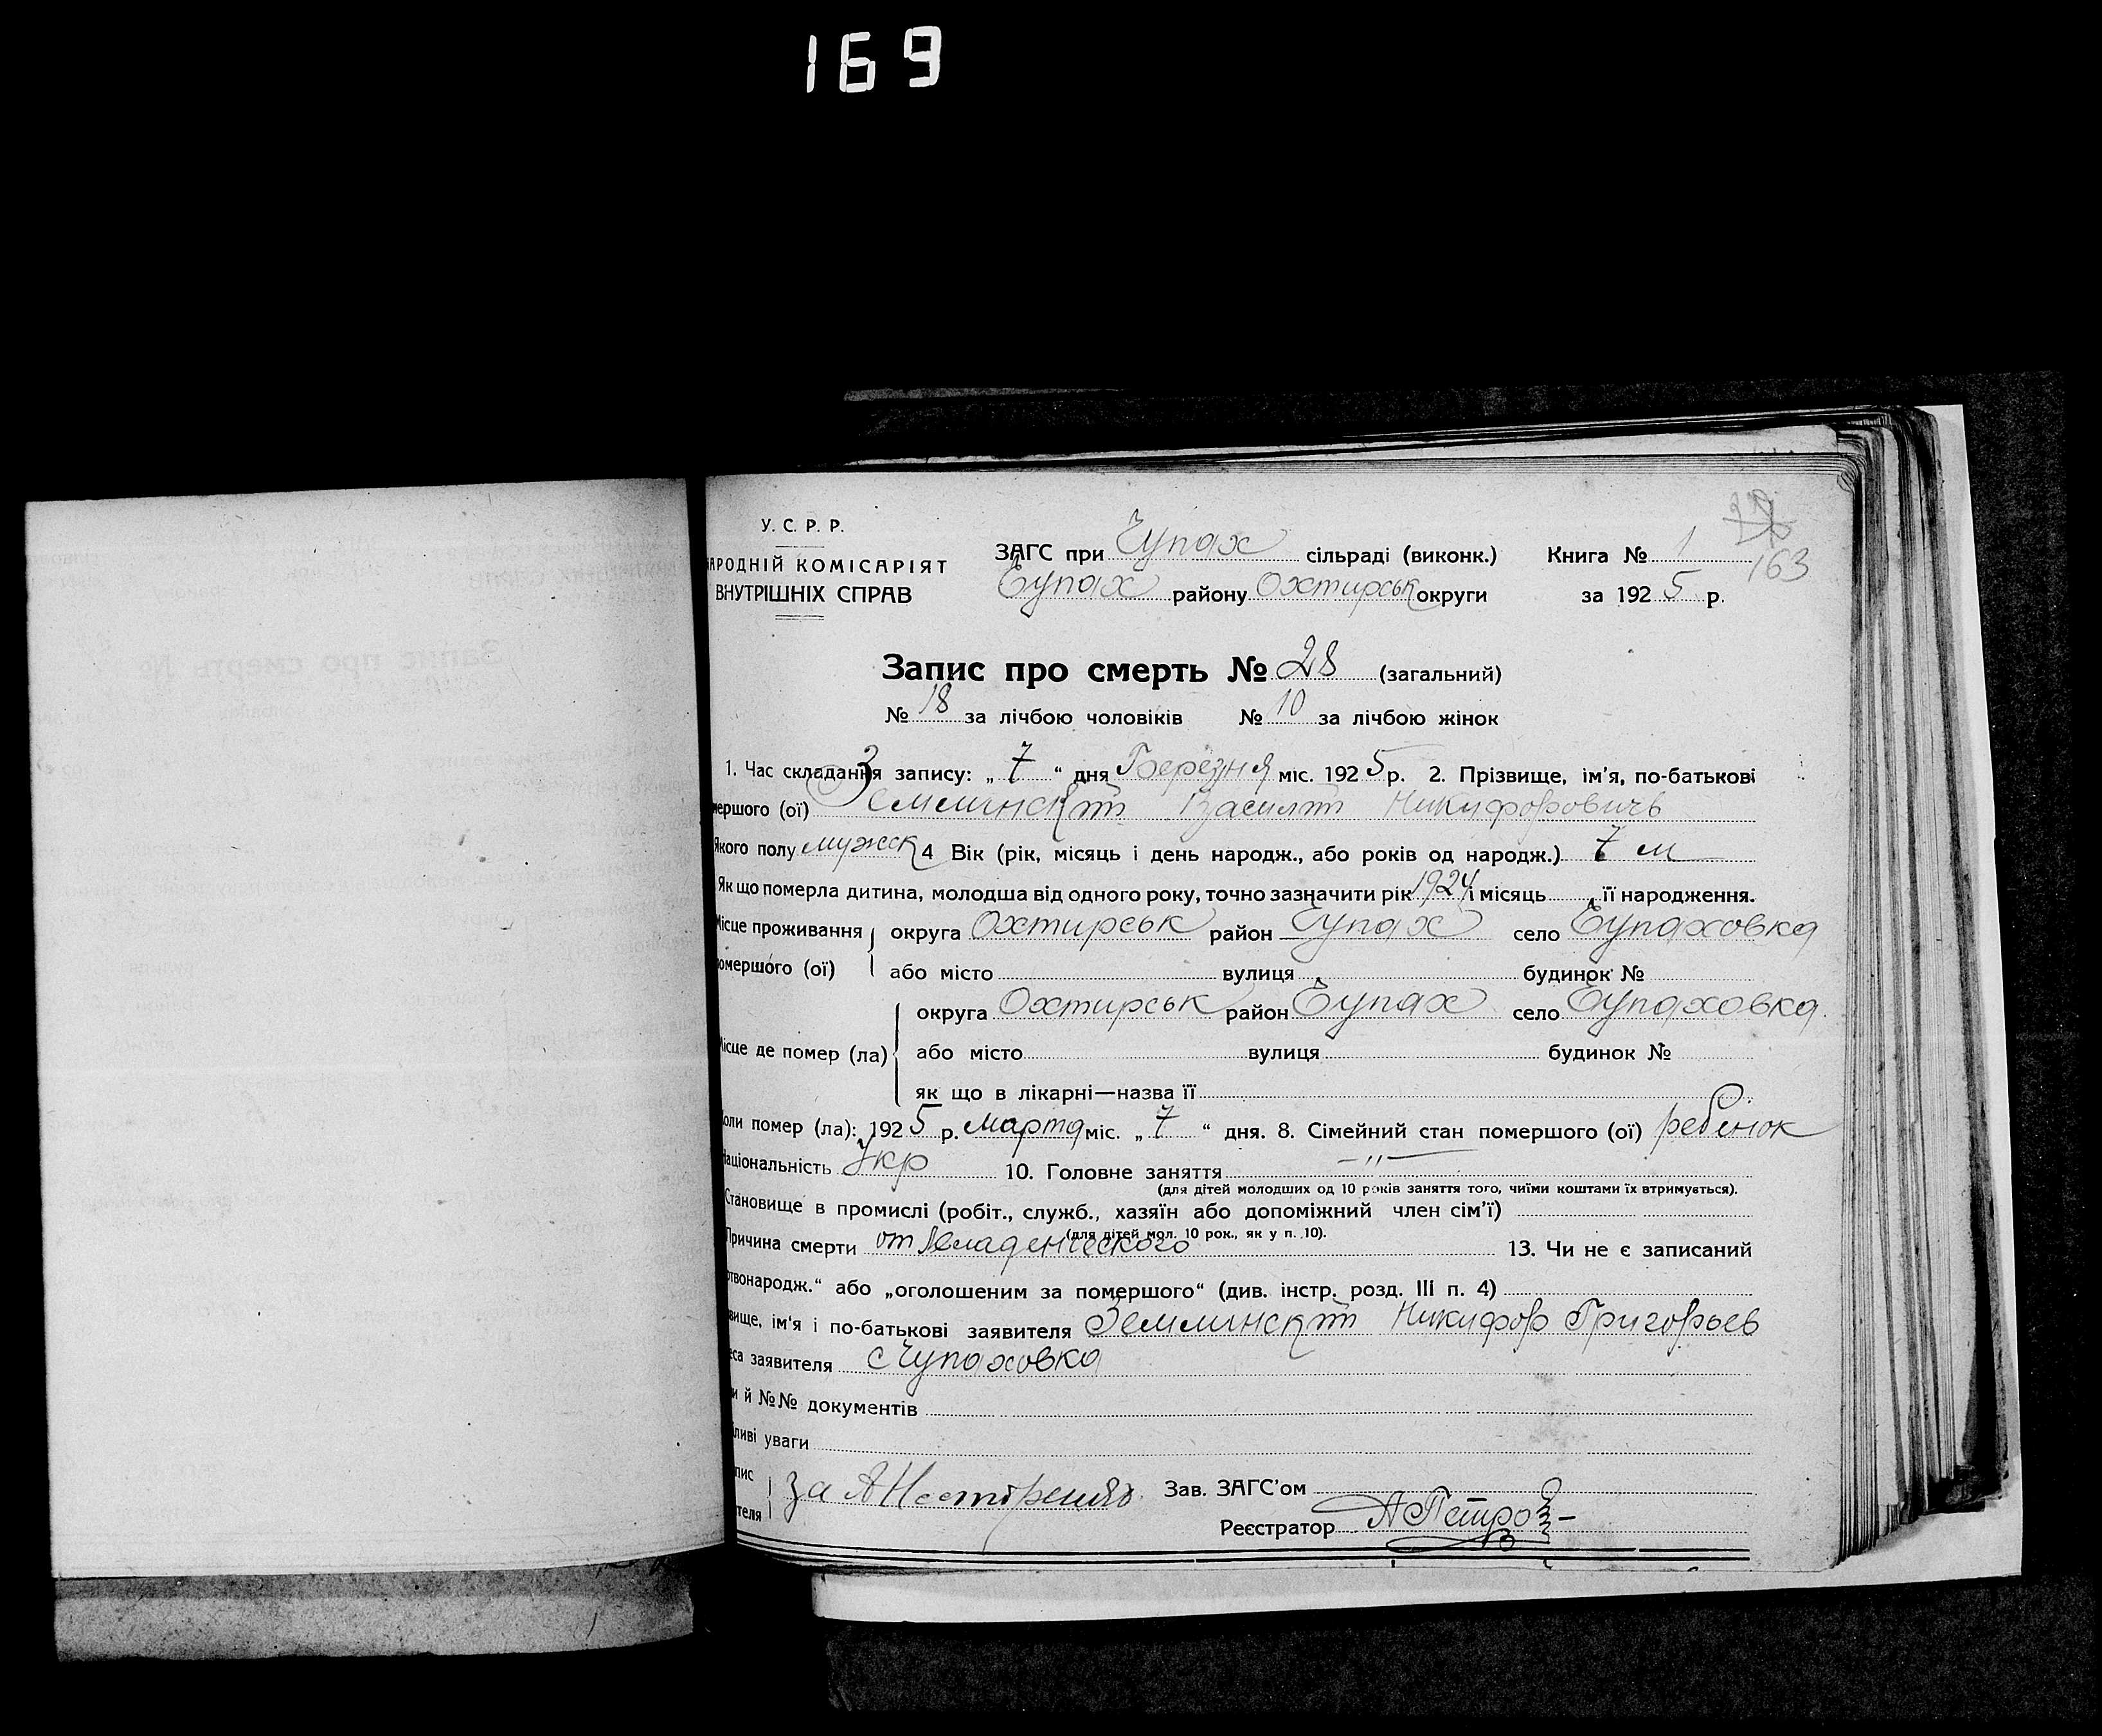 169
У. С. Р. Р.
АРОДНІЙ КОМІСАРІЯТ
ВНУТРІШНІХ СПРАВ
ЗАГС при Чупах сільраді (виконк.) Книга № 1
163
Чупах району Охтирськ округи за 1925 р.
Запис про смерть № 28 (загальний)
№ 18 за лічбою чоловіків № 10 за лічбою жінок
1. Час складання запису: „ 7 “ дня Березня міс. 1925 р. 2. Прізвище, ім’я, по-батькові
мершого (ої) Земминскт Василт Никифоровичь
Якого полу мужск 4 Вік (рік, місяць і день народж., або років од народж.) 7 м
Як що померла дитина, молодша від одного року, точно зазначити рік 1924 і місяць її народження.
Місце проживання округа Охтирськ район Чупах село Чупаховка
омершого (ої) або місто вулиця будинок №
округа Охтирськ район Чупах село Чупаховка
ісце де помер (ла) або місто вулиця будинок №
як що в лікарні—назва її
оли помер (ла): 1925 р. марта міс. „ 7 “ дня. 8. Сімейний стан помершого (ої) ребенок
аціональність Укр 10. Головне заняття —〃—
(для дітей молодших од 10 років заняття того, чиїми коштами їх втримується).
Становище в промислі (робіт., служб., хазяїн або допоміжний член сім’ї)
(для дітей мол. 10 рок., як у п. 10).
Причина смерти от Младенческого 13. Чи не є записаний
ртвонародж.“ або „оголошеним за помершого“ (див. інстр. розд. III п. 4)
вище, ім’я і по-батькові заявителя Земминскт Никифор Григорьев
еса заявителя с Чупаховка
и й №№ документів
ливі уваги
пис
теля за А Зав. ЗАГС’ом
Реєстратор АПетро